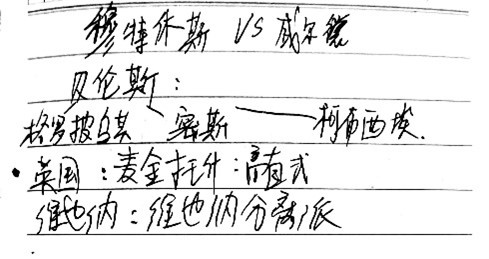 穆特休斯 VS 威尔德
贝伦斯：
格罗披乌斯 — 密斯 — 柯布西埃.
• 英国：麦金托什：高直式
维也纳：维也纳分离派